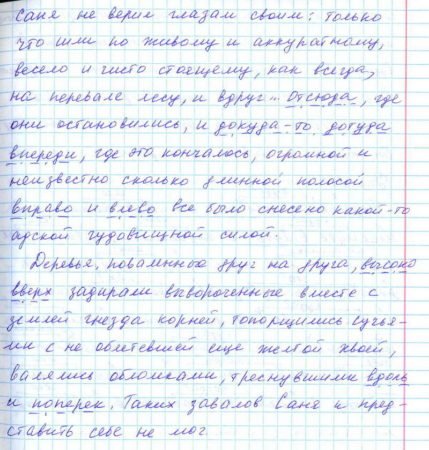 Саня не верил глазам своим: только
что шли по живому и аккуратному,
весело и чисто стоящему, как всегда,
на перевале лесу, и вдруг... Отсюда, где
они остановились, и докуда-то дотуда
впереди, где это кончалось, огромной и
неизвестно сколько длинной полосой
вправо и влево все было снесено какой-то
адской чудовищной силой.
Деревья, поваленные друг на друга, высоко
вверх задирали вывороченные вместе с
землей гнезда корней, топорщились сучья-
ми с не облетевшей еще желтой хвоей,
валялись обломками, треснувшими вдоль
и поперек. Таких завалов Саня и пред-
ставить себе не мог.